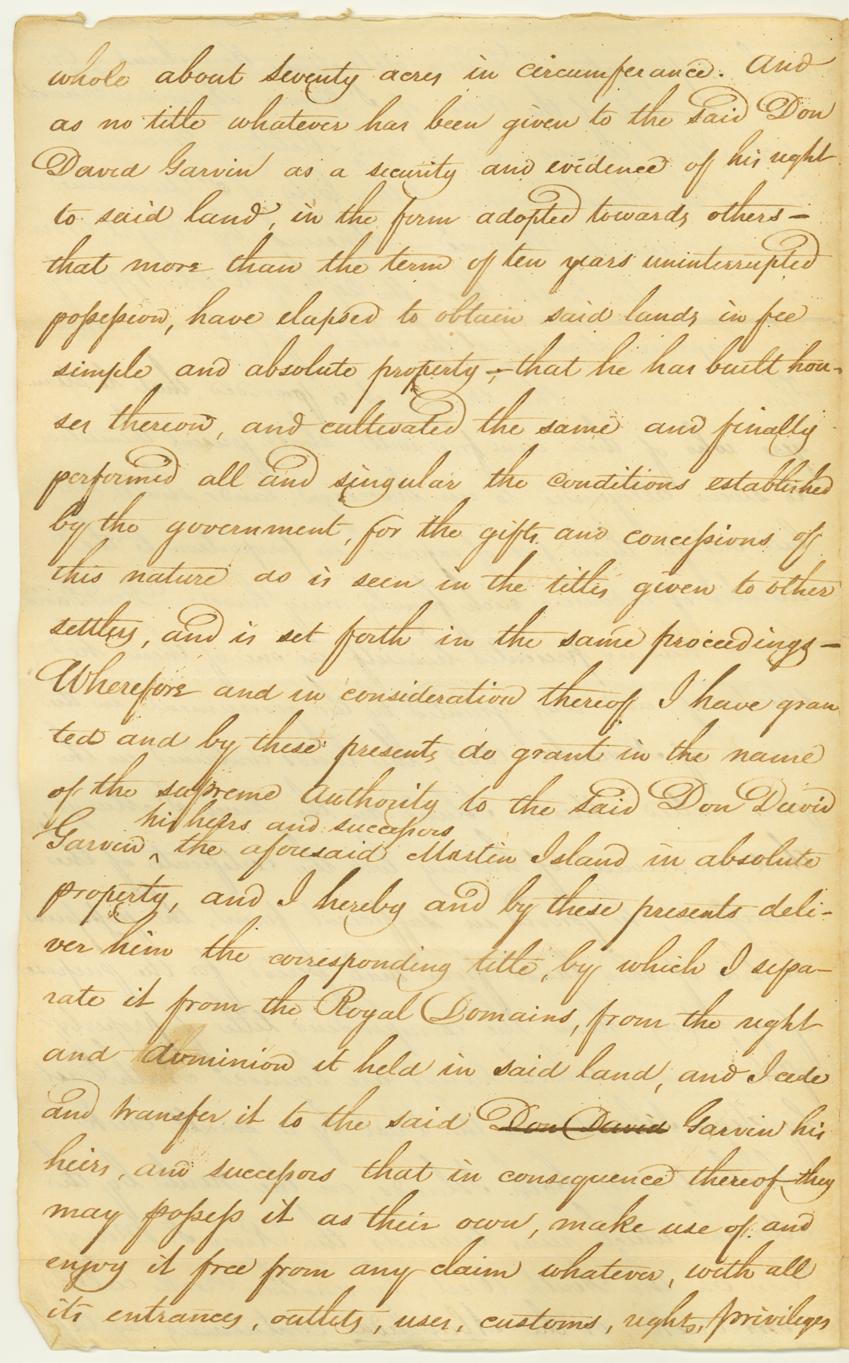 whole about seventy acres in circumferance. And
as no title whatever has been given to the said Don
David Garvin as a security and evidence of his right
to said land, in the form adopted towards others —
that more than the term of ten years uninterrupted
possession, have elapsed to obtain said lands in fee
simple and absolute property —, that he has built hou-
ses thereon, and cultivated the same and finally
performed all and singular the conditions established
by the government, for the gifts and concessions of
this nature as is seen in the titles given to other
settlers, and is set forth in the same proceedings —
Wherefore and in consideration thereof I have gran
ted and by these presents do grant in the name
of the supreme Authority to the said Don David
his heirs and successors
Garvin ‸ the aforesaid Martin Island in absolute
property, and I hereby and by these presents deli-
ver him the corresponding title, by which I sepa-
rate it from the Royal Domains, from the right
and dominion it held in said land, and I cede
and transfer it to the said Don David Garvin his
heirs, and successors that in consequence thereof they
may possess it as their own, make use of and
enjoy it free from any claim whatever, with all
its entrances, outlets, uses, customs, rights, privileges